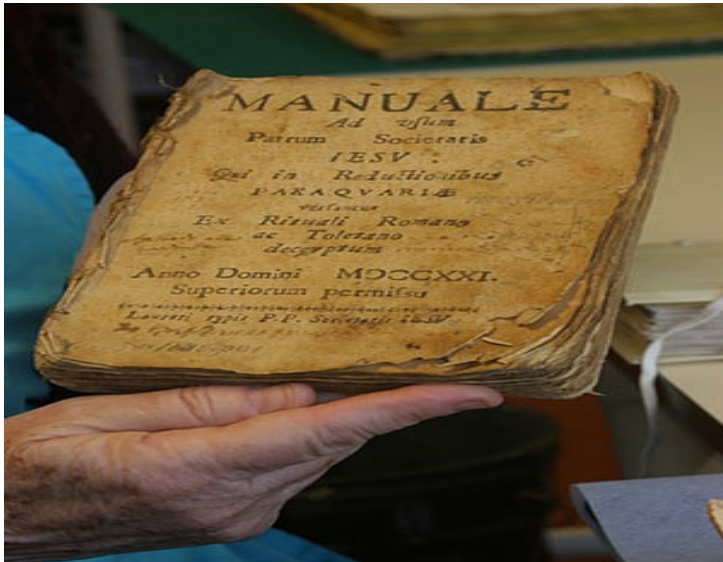 MANUALE
Ad usum
Patrum Societatis
IESV
Qui in Reductionibus
PARAQVARIÆ
versantur
Ex Rituali Romano
ac Toletano
decerptum
Anno Domini MDCCXXI.
Superiorum permissu
Laureti typis P.P. Societatis IESV